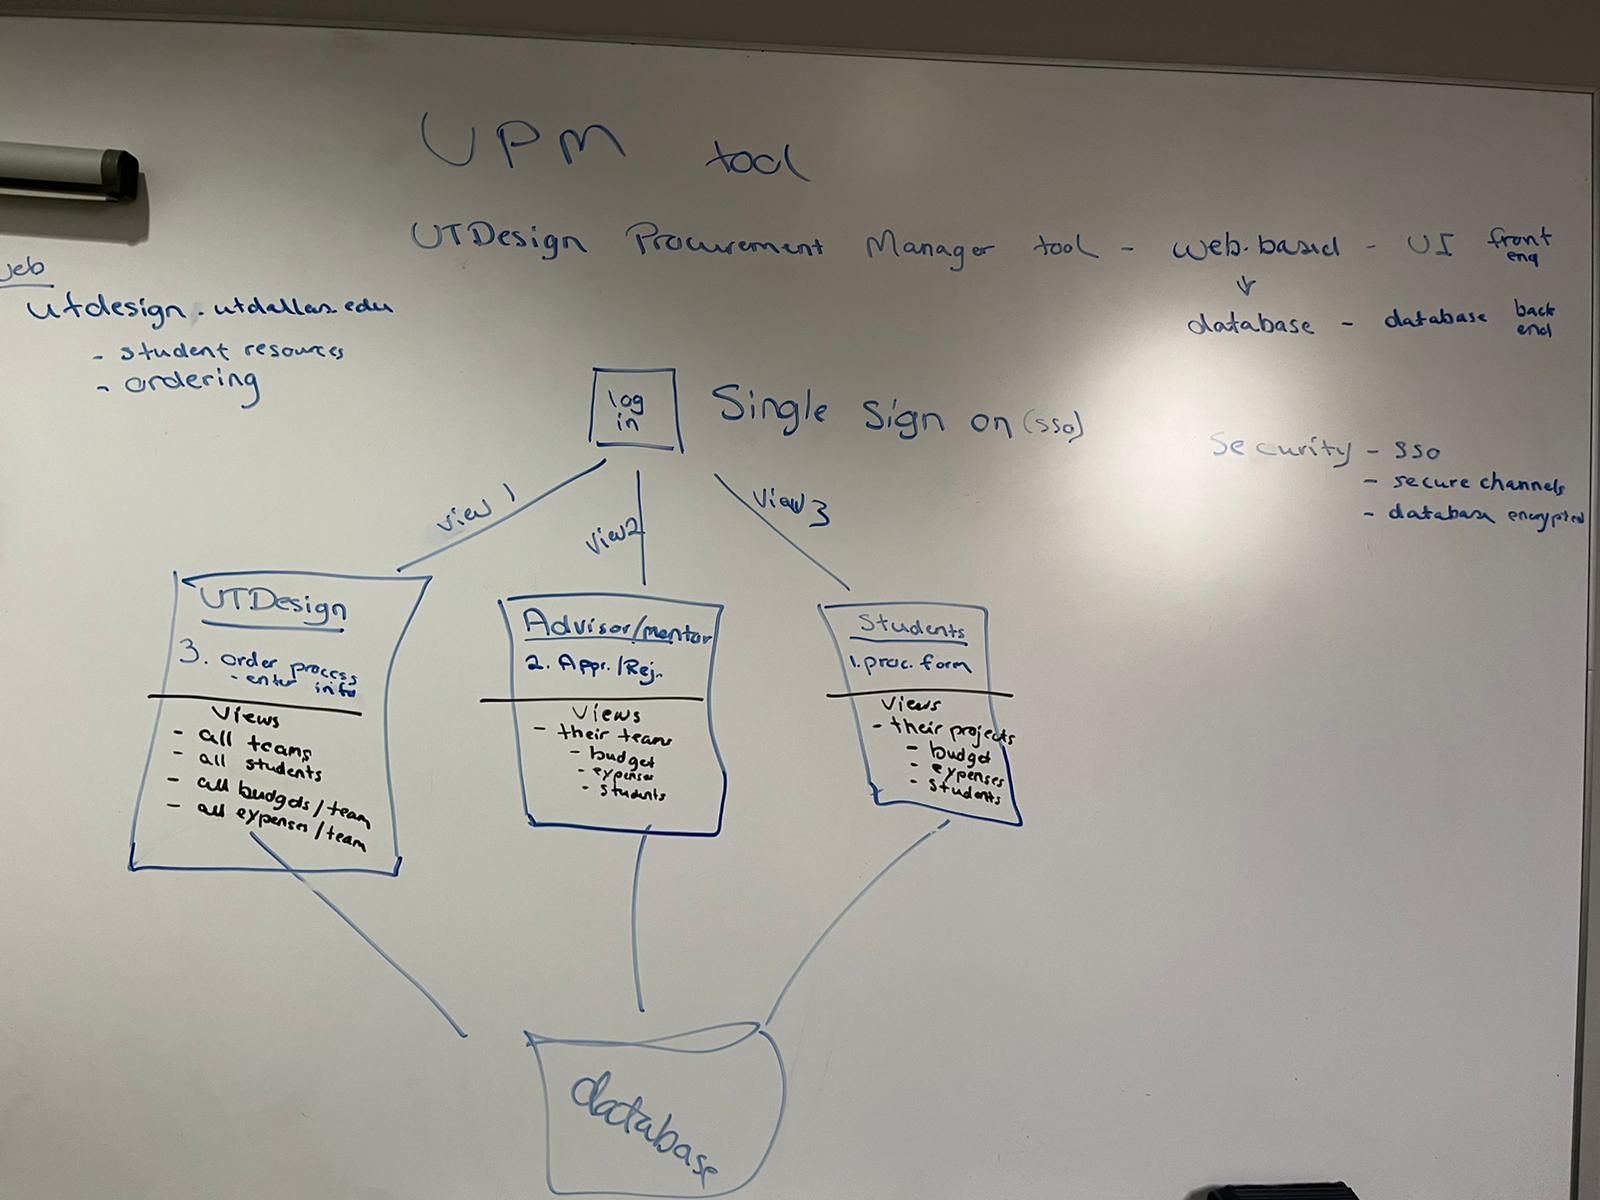 UPM tool
UTDesign Procurement Manager tool - web-based - UI front end
database - database back end
web
utdesign.utdallas.edu
- student resources
- ordering
log
in
Single Sign on (SSO)
Security - SSO
- secure channels
- database encrypted
view 1
view 2
view 3
UTDesign
3. order process
- enter info
Views
- all teams
- all students
- all budgets/team
- all expenses/team
Advisor/mentor
2. Appr./Rej.
Views
- their teams
- budget
- expenses
- students
Students
1. proc. form
Views
- their projects
- budget
- expenses
- students
database